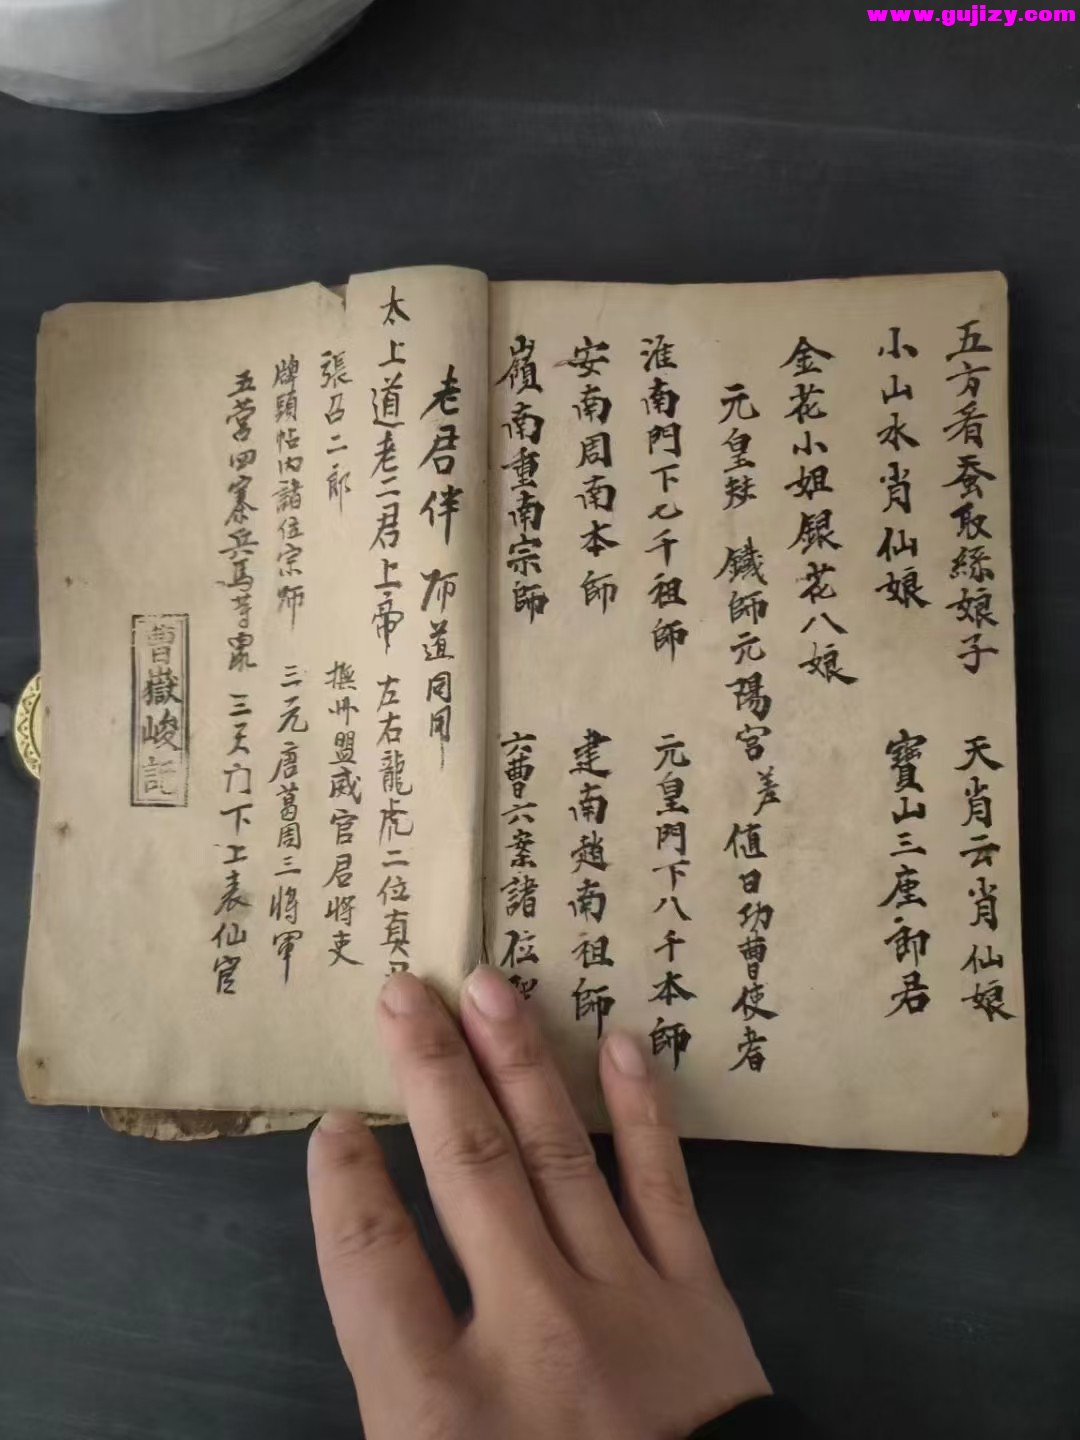 www.gujizy.com
五方看蚕取絲娘子 天肖云肖仙娘
小山水肖仙娘 寶山三座郎君
金花小姐銀花八娘
元皇 鐵師元陽宮差 值日功曹使者
淮南門下七千祖師 元皇門下八千本師
安南周南本師 建南趙南祖師
嶺南重南宗師 六曹六案諸位
老君伴 师道同
太上道老二君上帝 左右龍虎二位真君
張召二郎 撫州盟威官君將吏
牌頭帖内諸位宗师 三元唐葛周三將军
五营四寨兵馬等眾 三天门下上表仙官
曹嶽峻記